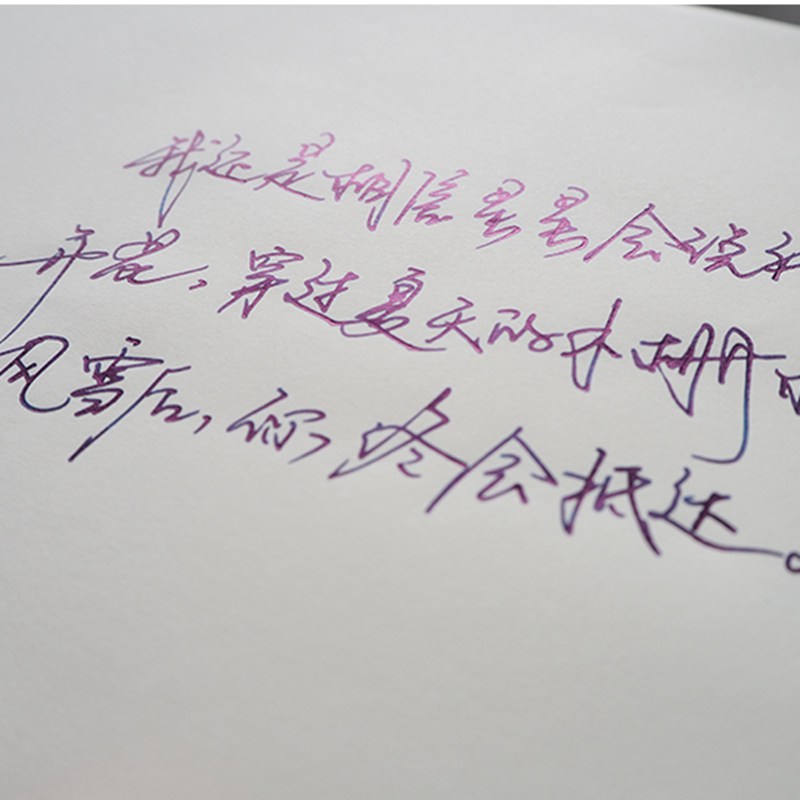 我还是相信星星会说
开花,穿过夏天的木栅
风雪后,你终会抵达。